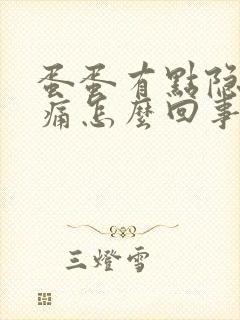 蛋蛋有點隐
痛怎麼回事
三燈雪